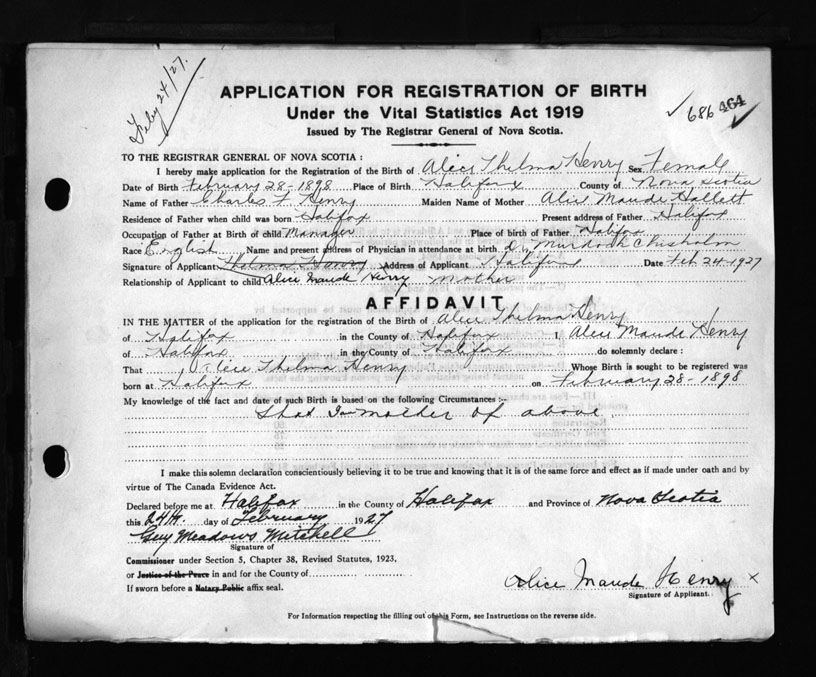 Feby 24/27.
APPLICATION FOR REGISTRATION OF BIRTH
Under the Vital Statistics Act 1919
686 464
Issued by The Registrar General of Nova Scotia.
TO THE REGISTRAR GENERAL OF NOVA SCOTIA :
I hereby make application for the Registration of the Birth of Alice Thelma Henry Sex Female
Date of Birth February 28-1898 Place of Birth Halifax County of Nova Scotia
Name of Father Charles F Henry Maiden Name of Mother Alice Maude Hallett
Residence of Father when child was born Halifax Present address of Father Halifax
Occupation of Father at Birth of child Manager Place of birth of Father Halifax
Race English Name and present address of Physician in attendance at birth Dr Murdoch Chisholm
Signature of Applicant Thelma Henry Address of Applicant Halifax Date Feb 24-1927
Relationship of Applicant to child Alice Maude Henry Mother
AFFIDAVIT
IN THE MATTER of the application for the registration of the Birth of Alice Thelma Henry
of Halifax in the County of Halifax I, Alice Maude Henry
of Halifax in the County of Halifax do solemnly declare :
That Alice Thelma Henry Whose Birth is sought to be registered was
born at Halifax on February 28-1898
My knowledge of the fact and date of such Birth is based on the following Circumstances :-
that I am mother of above
I make this solemn declaration conscientiously believing it to be true and knowing that it is of the same force and effect as if made under oath and by
virtue of The Canada Evidence Act.
Declared before me at Halifax in the County of Halifax and Province of Nova Scotia
this 24th day of February 1927
Guy Meadows Mitchell
Signature of
Commissioner under Section 5, Chapter 38, Revised Statutes, 1923,
or Justice of the Peace in and for the County of
If sworn before a Notary Public affix seal.
Alice Maude Henry x
Signature of Applicant.
For Information respecting the filling out of this Form, see Instructions on the reverse side.